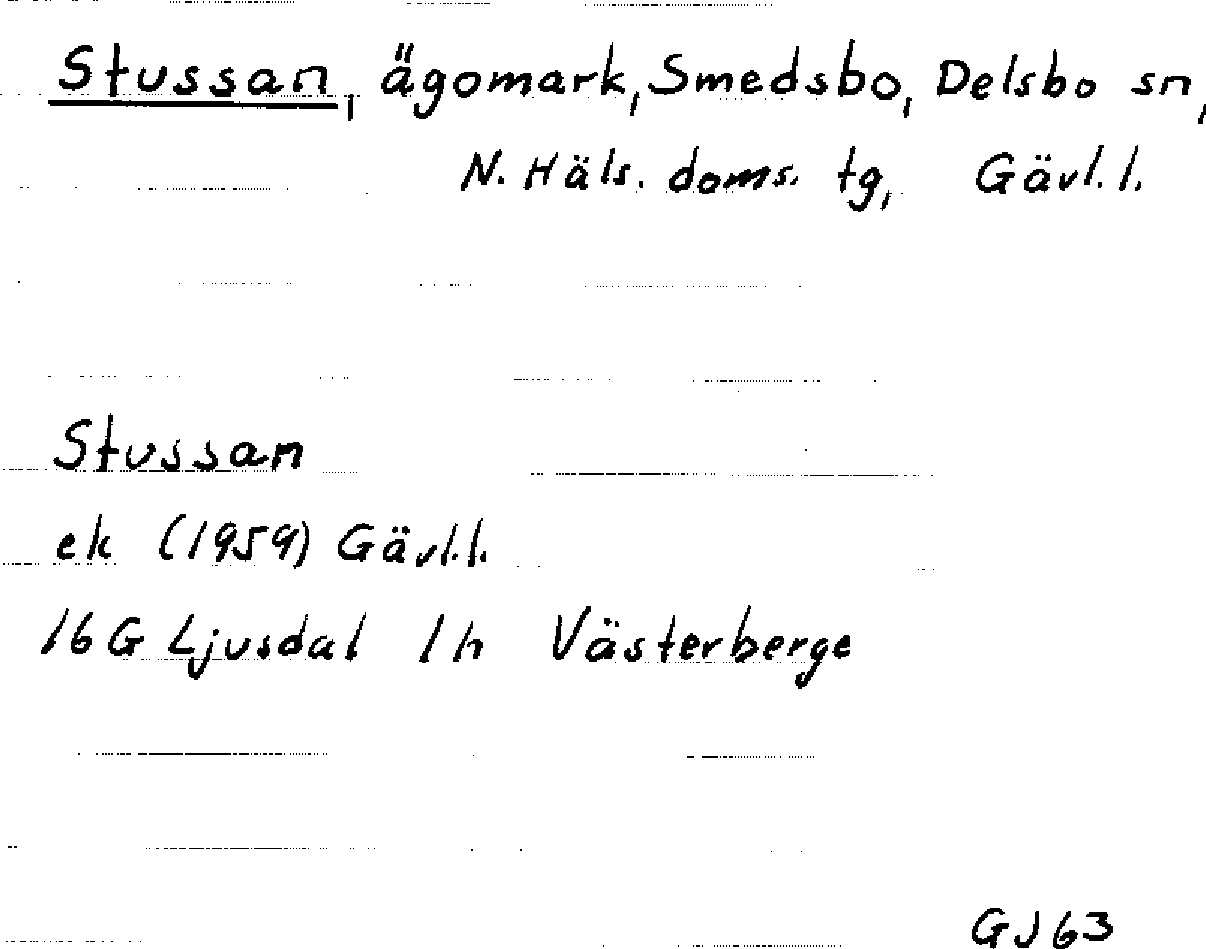 Stussan, ägomark, Smedsbo, Delsbo sn,
N. Häls. doms. tg, Gävl. l.
Stussan
ek (1959) Gävl. l.
16 G Ljusdal 1 h Västerberge
GJ 63